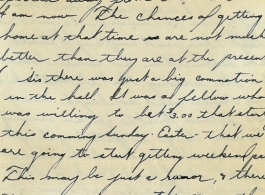 I am now. The chances of getting
home at that time is are not much
better than they are at the present
Sis there was just a big comnation
in the hall. It was a fellow who
was willing to bet 3.00 that start
this comming Sunday Easter that we
are going to start getting weekend pa
This may be just a rumor, & there